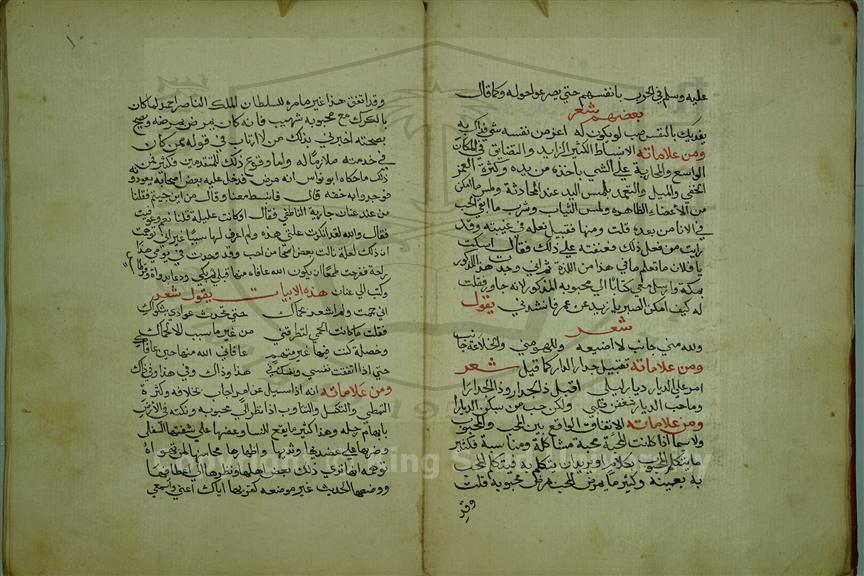 عليه وسلم في الحرب بانفسهم حتي يصرعوا حوله وكما قال
بعضهم شعر
يفديك بالنفس صب لو يكون له اعز من نفسه شي فداك به
ومن علاماته الانبساط الكثير الزايد والتضايق في المكان
الواسع والمجاذبة علي الشي ياخذه من يده وكثرة الغمز
الخفي والميل والتعمد بلمس اليد عند المحادثة ولمس ما امكن
من الاعضاء الظاهره ولمس الثياب وشرب ما ابقي المحب
في الانا من بعده قلت ومنها تقبيل نعله في غيبته وقد
رايت من فعل ذلك فعنفته علي ذلك فقال اسكت
يا فلان ما تعلم ما في هذا من اللذة ثم اني وجدت هذا المذكور
بمكة وارسل معي كتابا الي محبوبه المذكور لانه جاور فقلت
له كيف امكن الصبر يا زيد عن عمر فانشدني يقول
شعر
ولله مني جانب لا اضيعه وللهو مني والخلاعة جانب
ومن علاماته تقبيل جدار الدار كما قيل شعر
امر علي الديار ديار ليلي اقبل ذا الجدار وذا الجدارا
وما حب الديار شغفن قلبي ولكن حب من سكن الديارا
ومن علاماته الاتفاق الواقع بين المحب والمحبوب
ولا سيما اذا كانت المحبة محبة مشاكلة ومناسبة فكثير
ما يتكلم المحبوب بكلام او يريد ان يتكلم به فيتكلم المحب
به بعينه وكثير ما يمرض المحب مرض محبوبه قلت
وقد
وقد اتفق هذا غير ما مره للسلطان الملك الناصر احمد لما كان
بالكرك مع محبوبه شهيب فانه كان يمرض بمرضه ويصح
بصحته اخبرني بذلك من لا ارتاب في قوله ممن كان
في خدمته ملازما له واما وقوع ذلك للمتقدمين فكثير فمن
ذلك ما حكاه ابو نواس انه مرض فدخل عليه بعض اصحابه يعودوه
فوجدوا به خفه قال فانبسط معنا وقال من اين جيتم فقلنا
من عند عنان جارية الناطفي فقال اوكانت عليلة قلنا نعم وعوفيت
فقال والله لقد انكرت علتي هذه ولم اعرف لها سببا غير اني توهمت
ان ذلك لعلة نالت بعض من احب وقد وجدت في يومي هذا
راحة ففرحت طمعا ان يكون الله عافاه منها قبلي ثم دعا بدواة وقرطاس
وكتب الي عنان هذه الابيات يقول شعر
اني حممت ولم اشعر بحماك حتي تحدث عوادي بشكواك
فقلت ما كانت الحمي لتطرقني من غير ما سبب الا لحماك
وخصلة كنت فيها غير متهم عافاني الله منها حين عافاك
حتي اذا اتفقت نفسي ونفسك هذا وذاك وفي هذا وفي ذاك
ومن علاماته انه اذا سيل عن امر اجاب خلافه وكثرة
التمطي والتكسل والتثاوب اذا نظر الي محبوبه ونكته في الارض
بابهام رجله وهذا كثير ما يقع للنسا وعضها علي شفتها السفلي
وضربها علي عضديها وثديها واظهارها محاسنها لمن تهواه
توهمه انها تري ذلك بعض اهلها ونظرها الي اعطافها
ووضعها الحديث غير موضعه كقولها اياك اعني واسمعي